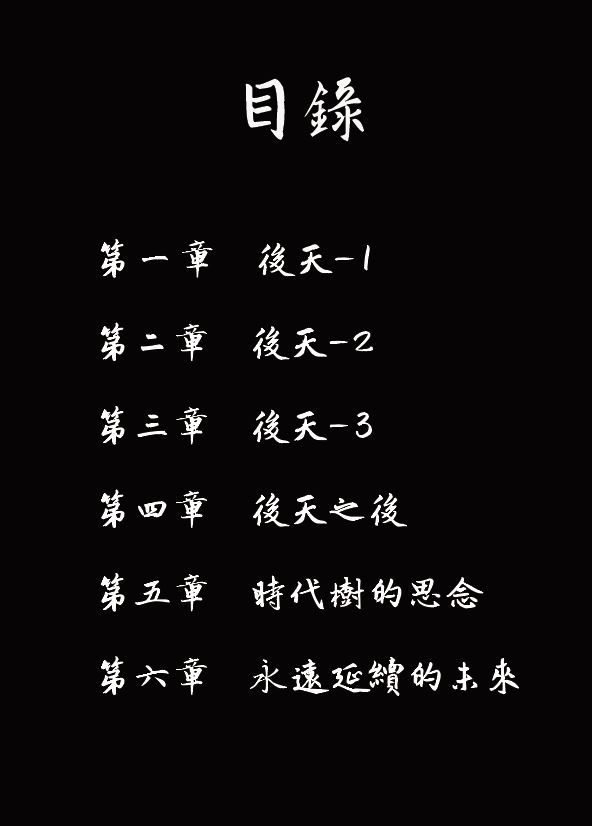 目錄
第一章 後天-1
第二章 後天-2
第三章 後天-3
第四章 後天之後
第五章 時代樹的思念
第六章 永遠延續的未來